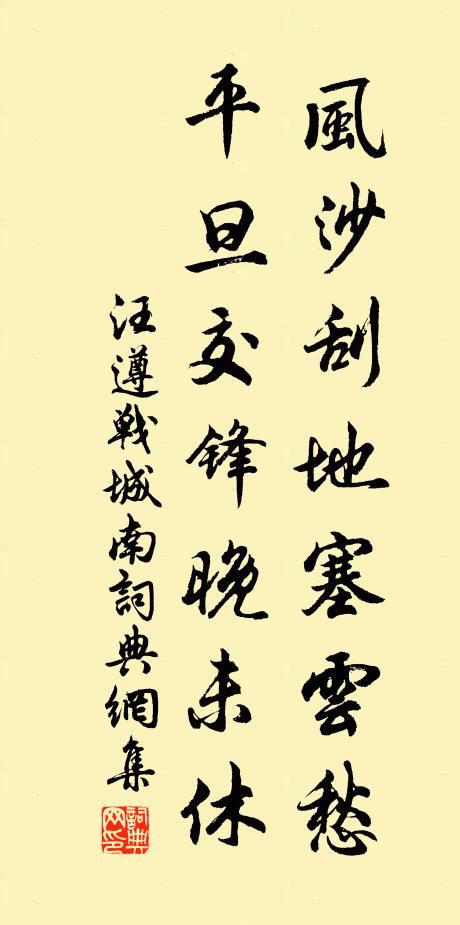 風沙刮地塞雲愁
平旦交鋒晚未休
汪遵戰城南詞典網集
詞典网印